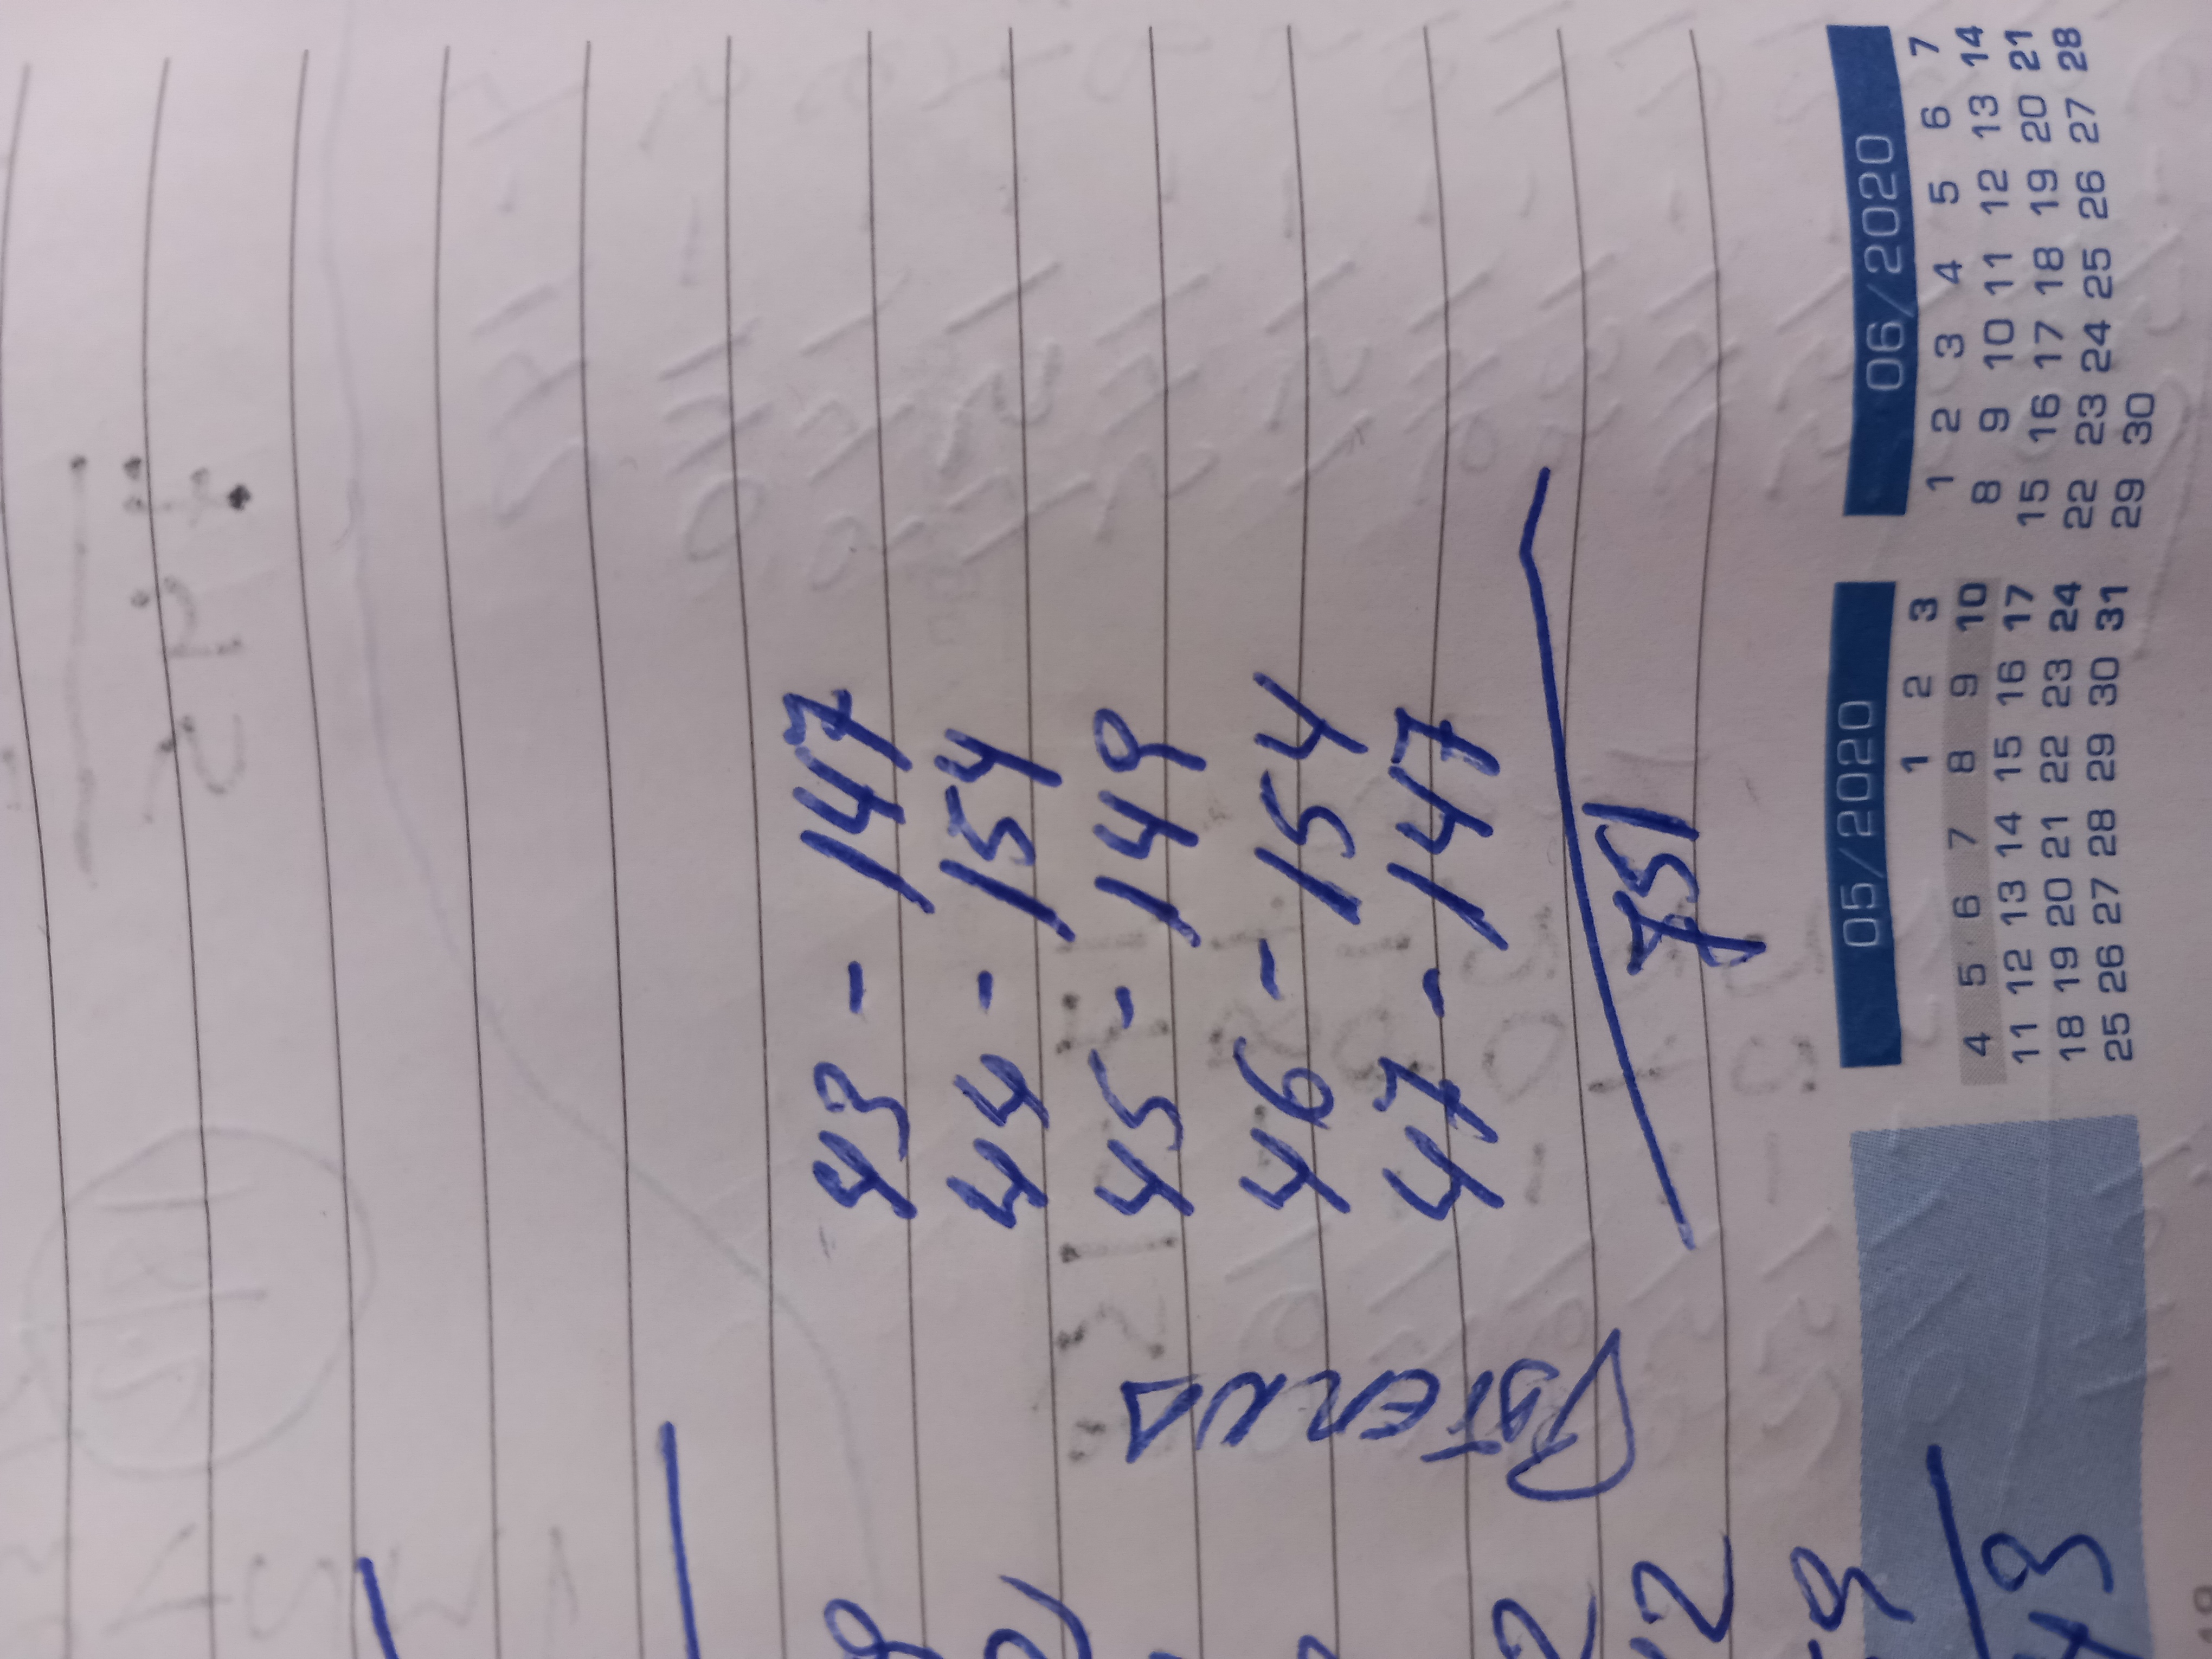 43 - 147
44 - 154
45 - 149
46 - 154
47 - 147
751
05/2020
1 2 3
4 5 6 7 8 9 10
11 12 13 14 15 16 17
18 19 20 21 22 23 24
25 26 27 28 29 30 31
06/2020
1 2 3 4 5 6 7
8 9 10 11 12 13 14
15 16 17 18 19 20 21
22 23 24 25 26 27 28
29 30